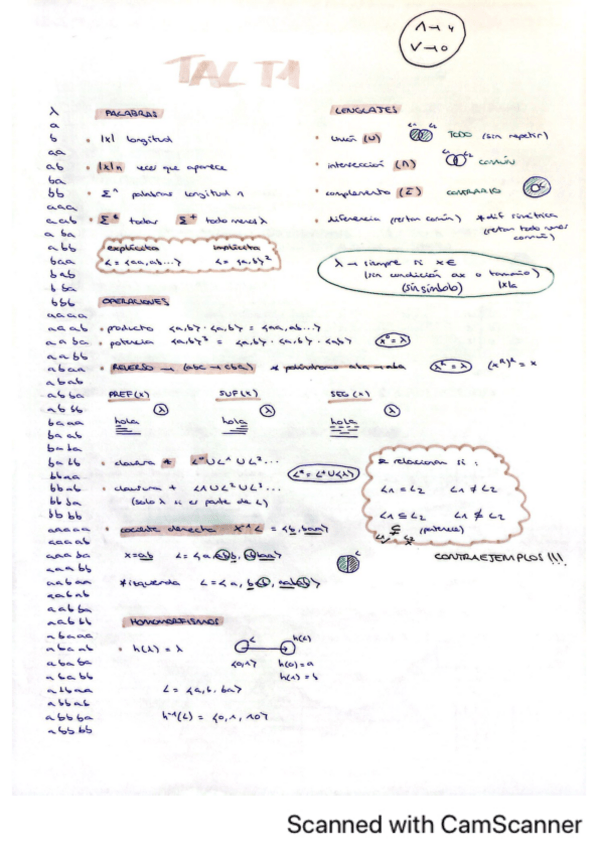 Λ → Y
V → O
TALF T1
λ
a
b
aa
ab
ba
bb
aaa
aab
aba
abb
baa
bab
bba
bbb
aaaa
aaab
aaba
aabb
abaa
abab
abba
abbb
baaa
baab
baba
babb
bbaa
bbab
bbba
bbbb
aaaaa
aaaab
aaaba
aaabb
aabaa
aabab
aabba
aabbb
abaaa
abaab
ababa
ababb
abbaa
abbab
abbba
abbbb
PALABRAS
• |x| longitud
• |x|n veces que aparece
• Σⁿ palabras longitud n
• Σ* todas Σ⁺ todo menos λ
explícita implícita
L = {aa, ab...} L = {a,b}²
LENGUAJES
• Unión (U) L1 L2 TODO (sin repetir)
• intersección (∩) L1 L2 COMÚN
• complemento CONTRARIO
• diferencia (restan común) * dif simétrica
(restan todo menos
común)
λ → siempre si x ∈
(sin condición ax o tamaño)
(sin símbolo)
OPERACIONES
• producto {a,b} · {a,b} = {aa, ab...}
• potencia {a,b}³ = {a,b} · {a,b} · {a,b} x⁰ = λ
• REVERSO → (abc → cba) * palíndromo aba → aba λᴿ = λ (xᴿ)ᴿ = x
PREF(x) SUF(x) SEG(x)
λ λ λ
hola hola hola
• clausura * L⁰ U L¹ U L²...
L* = L⁺ U {λ}
• clausura + L1 U L² U L³...
(solo λ si es parte de L)
• cociente derecha X⁻¹L = {b, baa}
x = ab
* izquierda
* relacionan si :
L1 = L2 L1 ≠ L2
L1 ⊆ L2 L1 ⊈ L2
CONTRAEJEMPLOS !!!
HOMOMORFISMOS
• h(λ) = λ L h(L)
{0,1} h(0) = a
h(1) = b
L = {a, b, ba}
h⁻¹(L) = {0, 1, 10}
Scanned with CamScanner